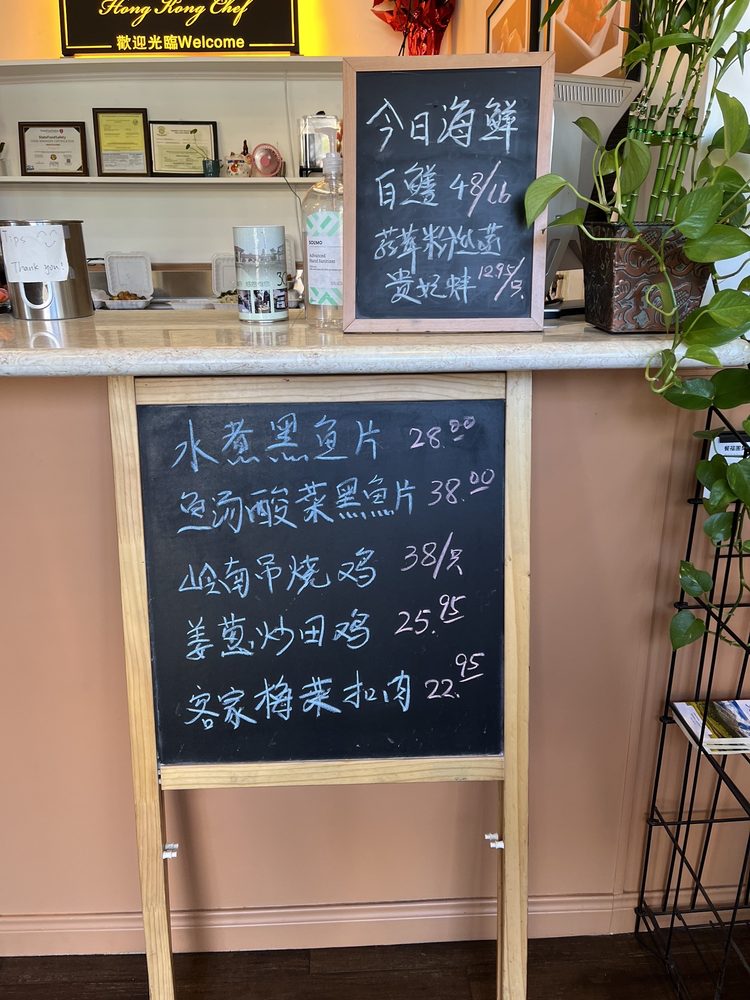 Hong Kong Chef
歡迎光臨Welcome
Tips
Thank you!
SOLIMO
Advanced
Hand Sanitizer
今日海鲜
白鳝 48/lb
蒜茸粉丝蒸
贵妃蚌 12.95/只
水煮黑鱼片 28.00
鱼汤酸菜黑魚片 38.00
岭南吊烧鸡 38/只
姜葱炒田鸡 25.95
客家梅菜扣肉 22.95